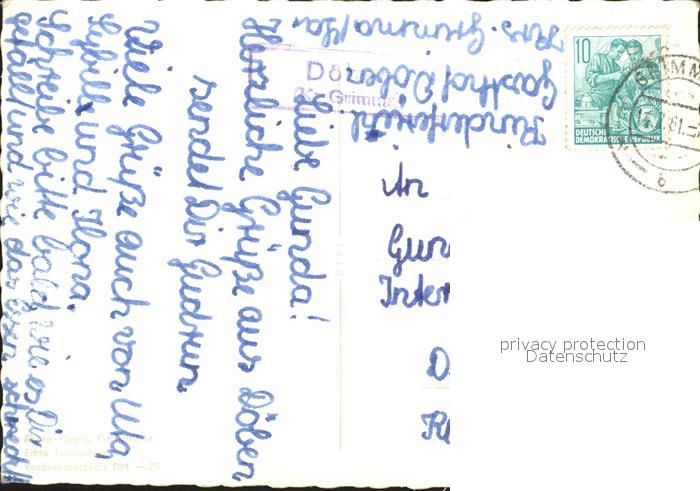 Liebe Gunda!
Herzliche Grüße aus Döben
sendet Dir Gudrun.
Viele Grüße auch von Uta,
Sybill und Ilona.
Schreibe bitte bald, wie es Dir
gefällt und wie das Essen schmeckt
Kinderferienl
Gasthof Döben
Krs. Grimma/Sa.
Dö
Kr. Grimma
10
DEUTSCHE
DEMOKRATISCHE REPUBLIK
GRIMM
61
b
An
Gun
Inter
D
privacy protection
Datenschutz
Echte Fotogr
Verbraucherpreis DM —.25